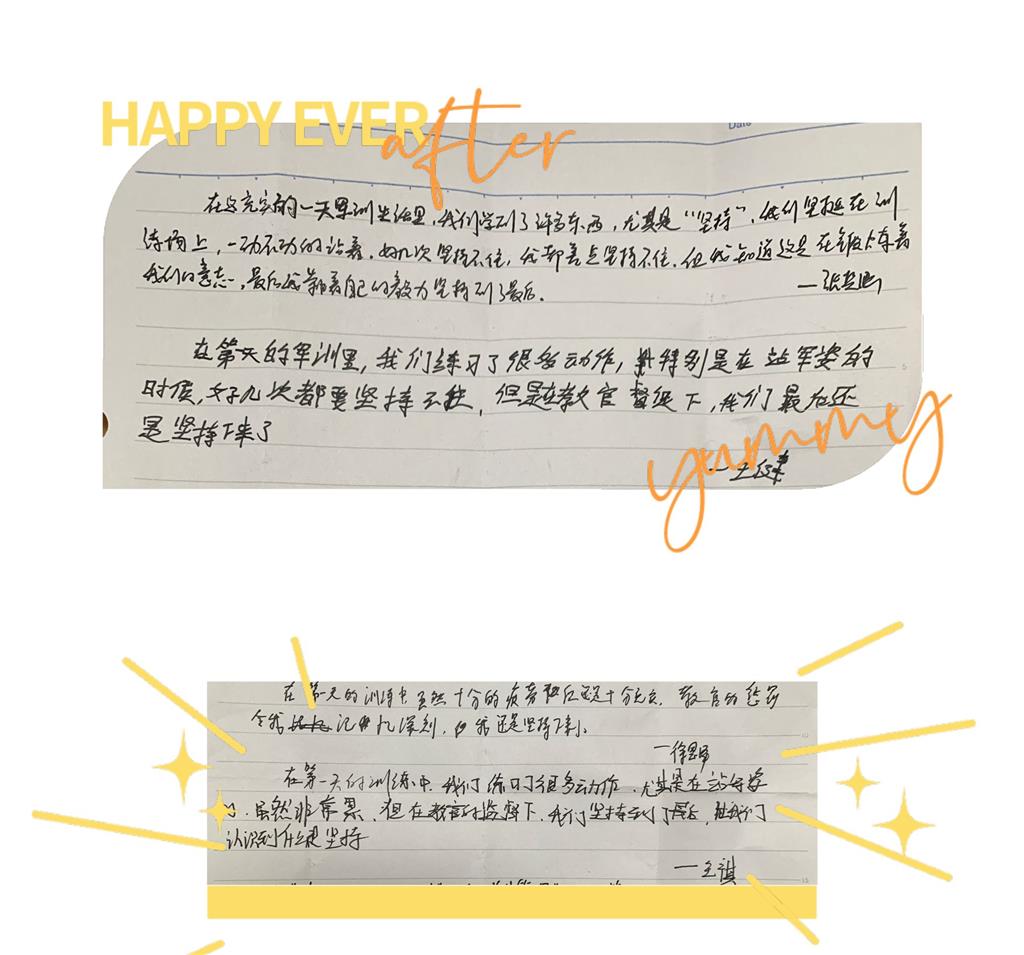 HAPPY EVER after
Date
在这充实的一天军训生活里,我们学到了许多东西,尤其是“坚持”,我们坚挺在训
练场上,一动不动的站着,好几次坚持不住,我都差点坚持不住,但我知道这是在锻炼着
我们的意志,最后我靠着自己的毅力坚持到了最后。
—张
在第一天的军训里,我们练习了很多动作,特别是在站军姿的
时候,好几次都要坚持不住,但是在教官督促下,我们最后还
是坚持下来了
yummy
—王
在第一天的训练中虽然十分的疲劳但后还是十分充实,教官的
令我记忆深刻,我还是坚持下来了。
—徐
在第一天的训练中,我们练习了很多动作,尤其是在站军姿
时,虽然非常累,但在教官的监督下,我们坚持到了最后,让我们
认识到什么是坚持
—王琪